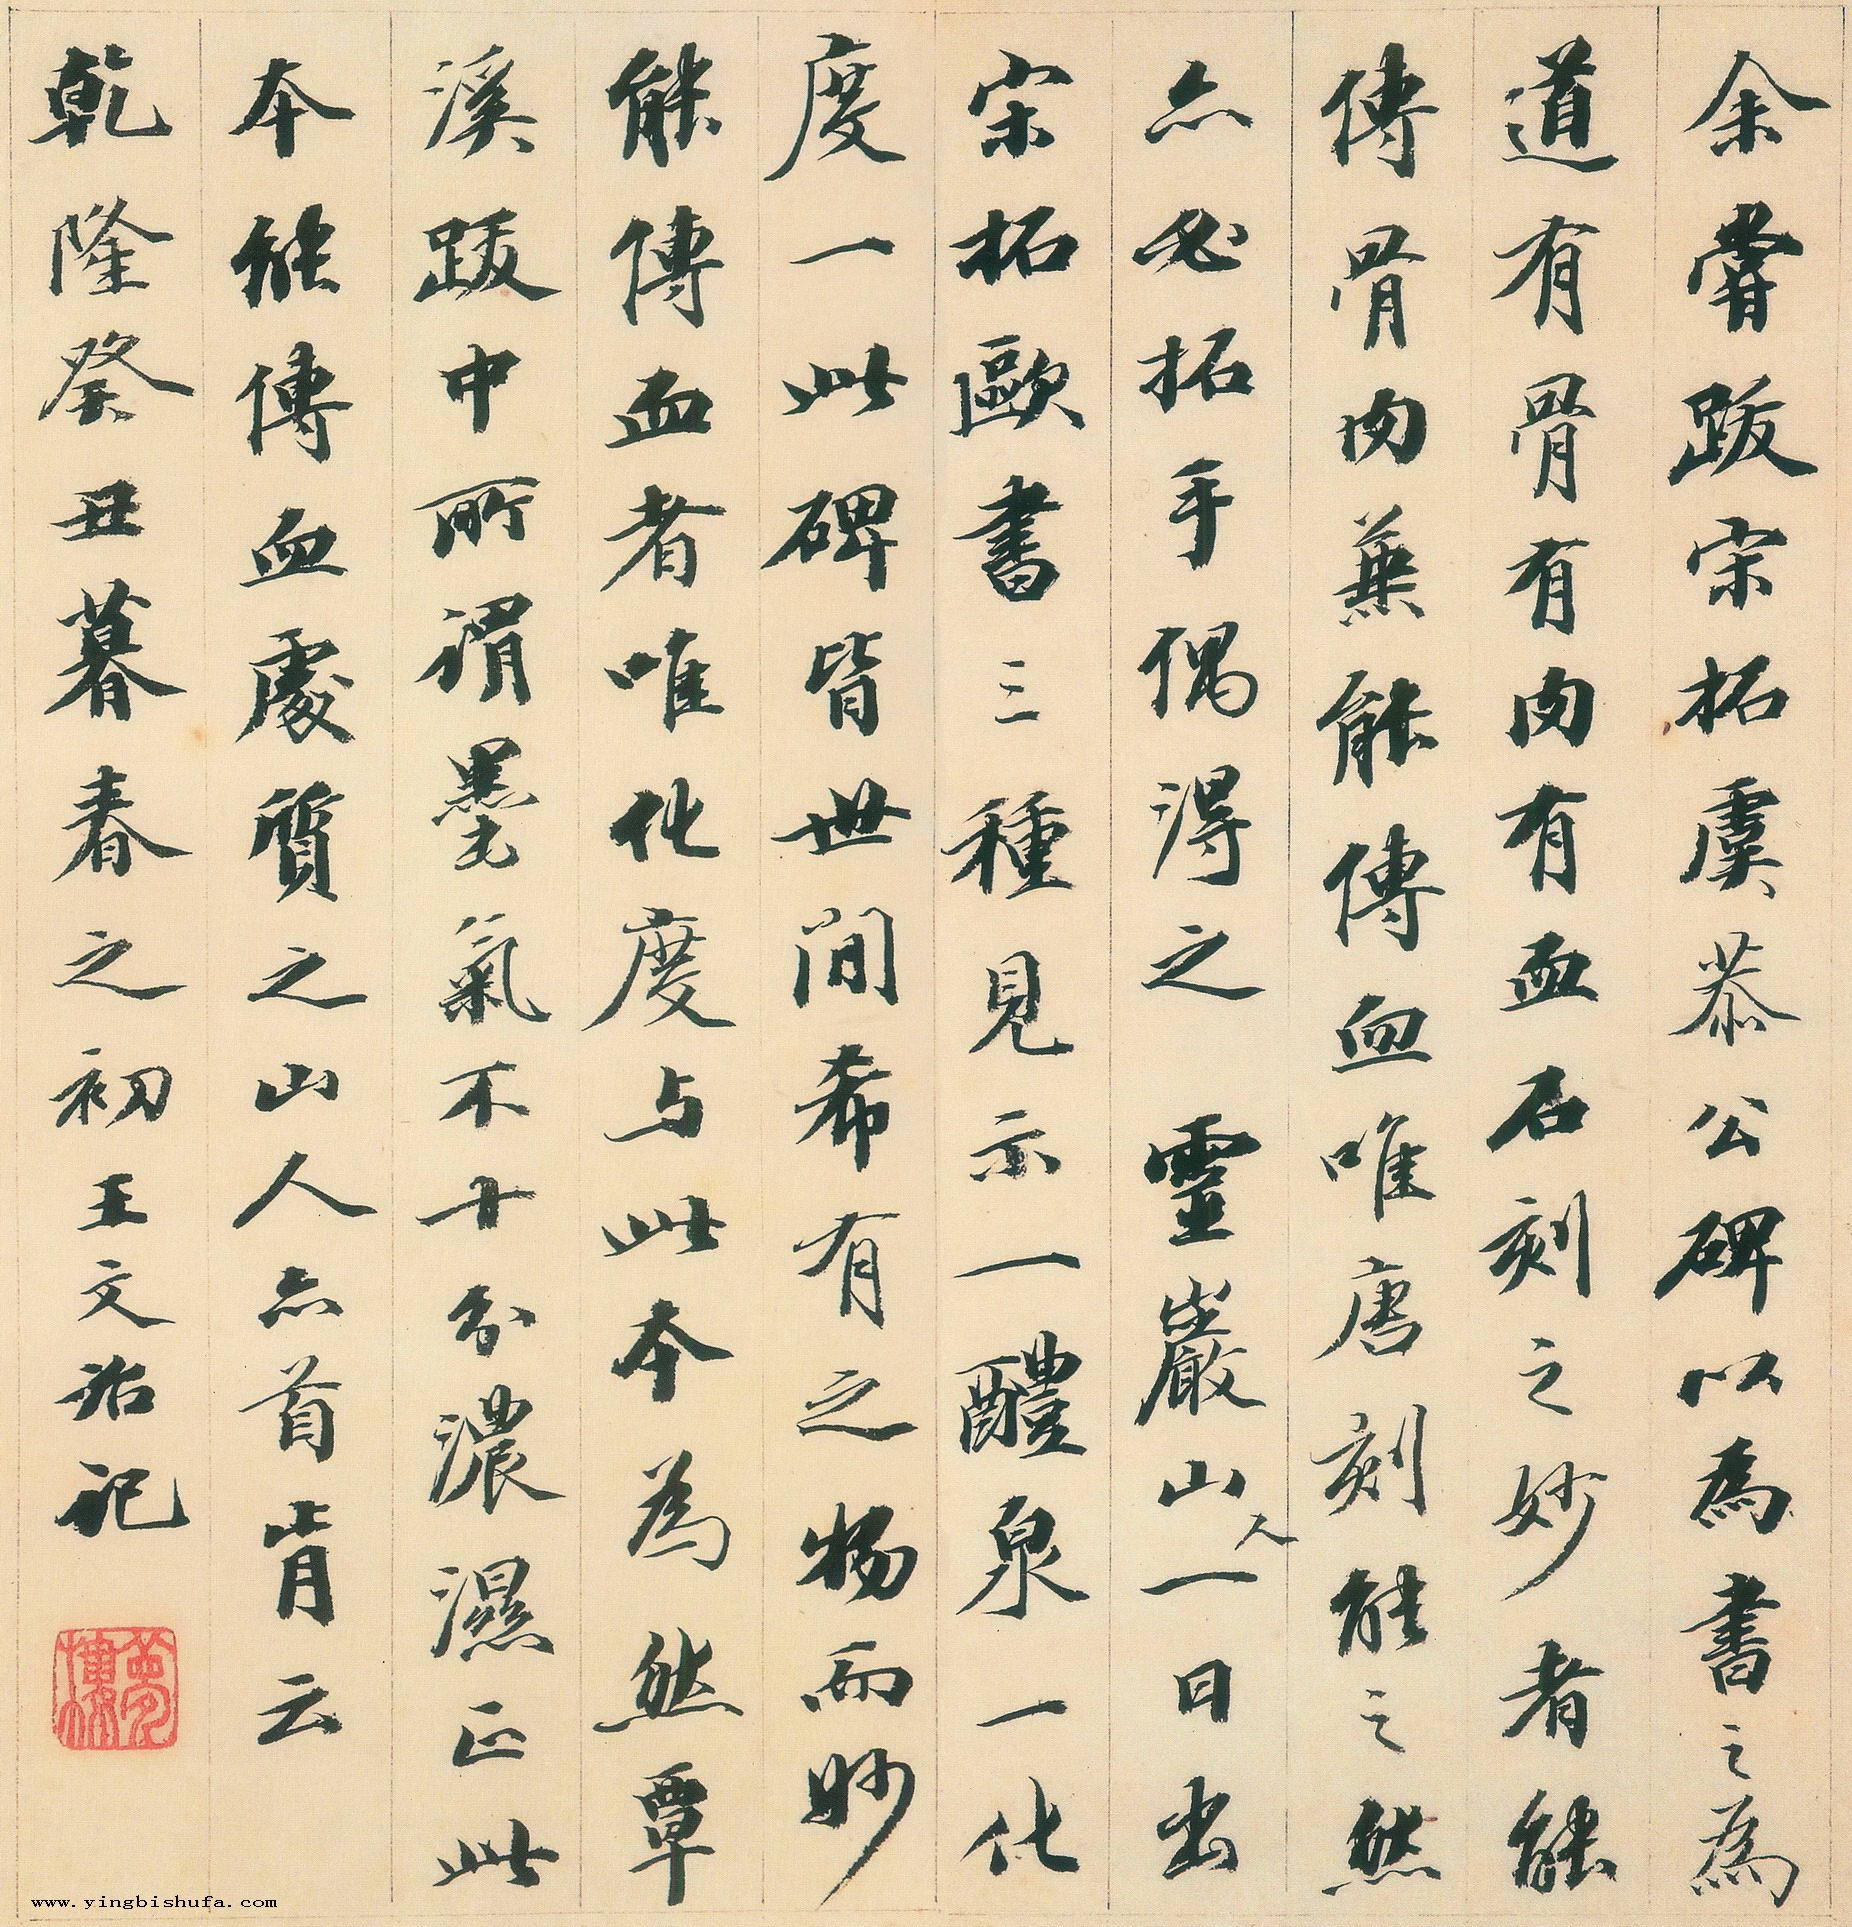 余嘗跋宗拓虞恭公碑以為書之為
道有骨有肉有血石刻之妙者能
傳骨肉兼能傳血唯唐刻能之然
亦必拓手偶得之 靈巖山人一日出
宋拓歐書三種見示一醴泉一化
度一此碑皆世間希有之物而妙
能傳血者唯化度与此本為然覃
溪跋中所謂墨氣不十分濃濕正此
本能傳血處質之山人亦首肯云
乾隆癸丑暮春之初王文治記
夢樓
www.yingbishufa.com